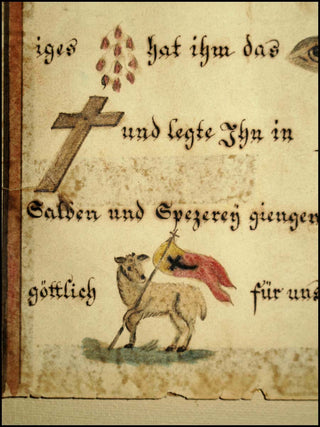 iges hat ihm das
und legte Ihn in
Salben und Spezerey giengen
göttlich für uns